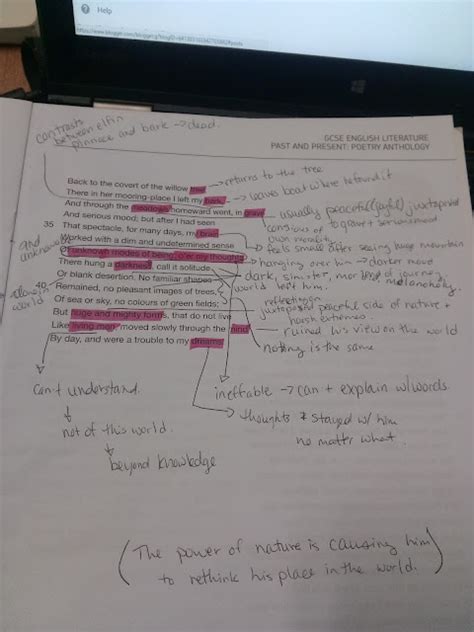 Help
contrasts
between elfin
pinnace and bark → dead.
GCSE ENGLISH LITERATURE
PAST AND PRESENT: POETRY ANTHOLOGY
Back to the covert of the willow tree → returns to the tree
There in her mooring-place I left my bark, → leaves boat where he found it
And through the meadows homeward went, in grave → usually peaceful (joyful) juxtaposed
And serious mood; but after I had seen to grave + seriousness
35 That spectacle, for many days, my brain conscious of own
Worked with a dim and undetermined sense feels small after seeing huge mountain
Of unknown modes of being; o'er my thoughts → hanging over him → darker mood
There hung a darkness, call it solitude dark, sinister, of journey,
Or blank desertion. No familiar shapes world left him. melancholy.
40 Remained, no pleasant images of trees, reflecting on
Of sea or sky, no colours of green fields; juxtaposed peaceful side of nature +
But huge and mighty forms, that do not live harsh extremes.
Like living men, moved slowly through the mind → ruined his view on the world
By day, and were a trouble to my dreams. nothing is the same
unknown
world
can't understand.
not of this world.
beyond knowledge
ineffable → can't explain w/ words
thoughts stayed w/ him
no matter what.
(The power of nature is causing him
to rethink his place in the world.)